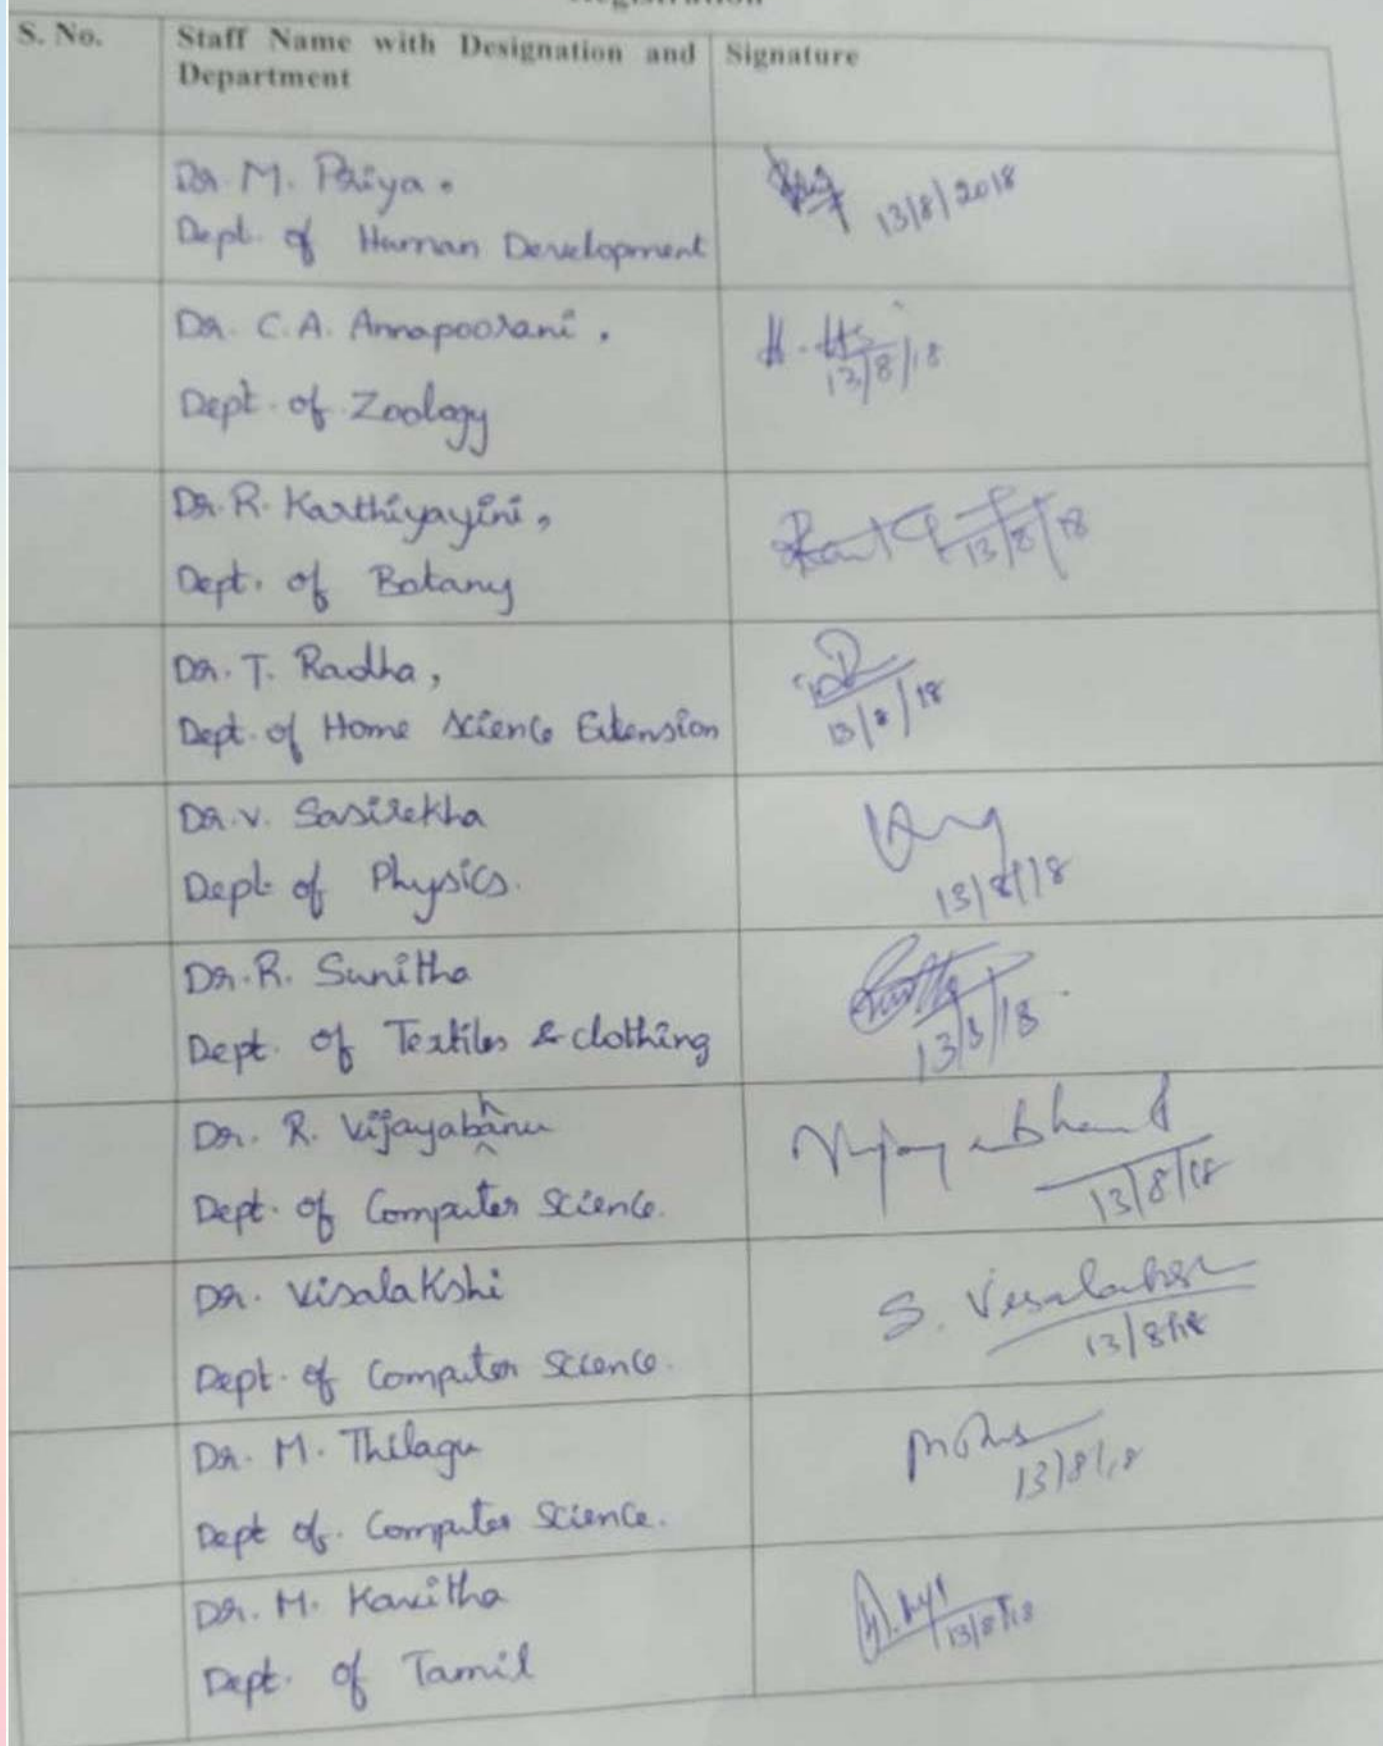 Registration
S. No.
Staff Name with Designation and
Department
Signature
Dr. M. Priya.
Dept. of Human Development
13/8/2018
Dr. C.A. Annapoorani.
Dept. of Zoology
13/8/18
Dr. R. Karthiyayini,
Dept. of Botany
13/8/18
Dr. T. Radha,
Dept. of Home Science Extension
13/8/18
Dr. V. Sasirekha
Dept of Physics.
13/8/18
Dr. R. Sunitha
Dept. of Textiles & clothing
13/8/18
Dr. R. Vijayabhanu
Dept. of Computer Science.
13/8/18
Dr. Visalakshi
Dept. of Computer Science.
S. Visalakshi
13/8/18
Dr. M. Thilagu
Dept of. Computer Science.
13/8/18
Dr. M. Kavitha
Dept. of Tamil
13/8/18